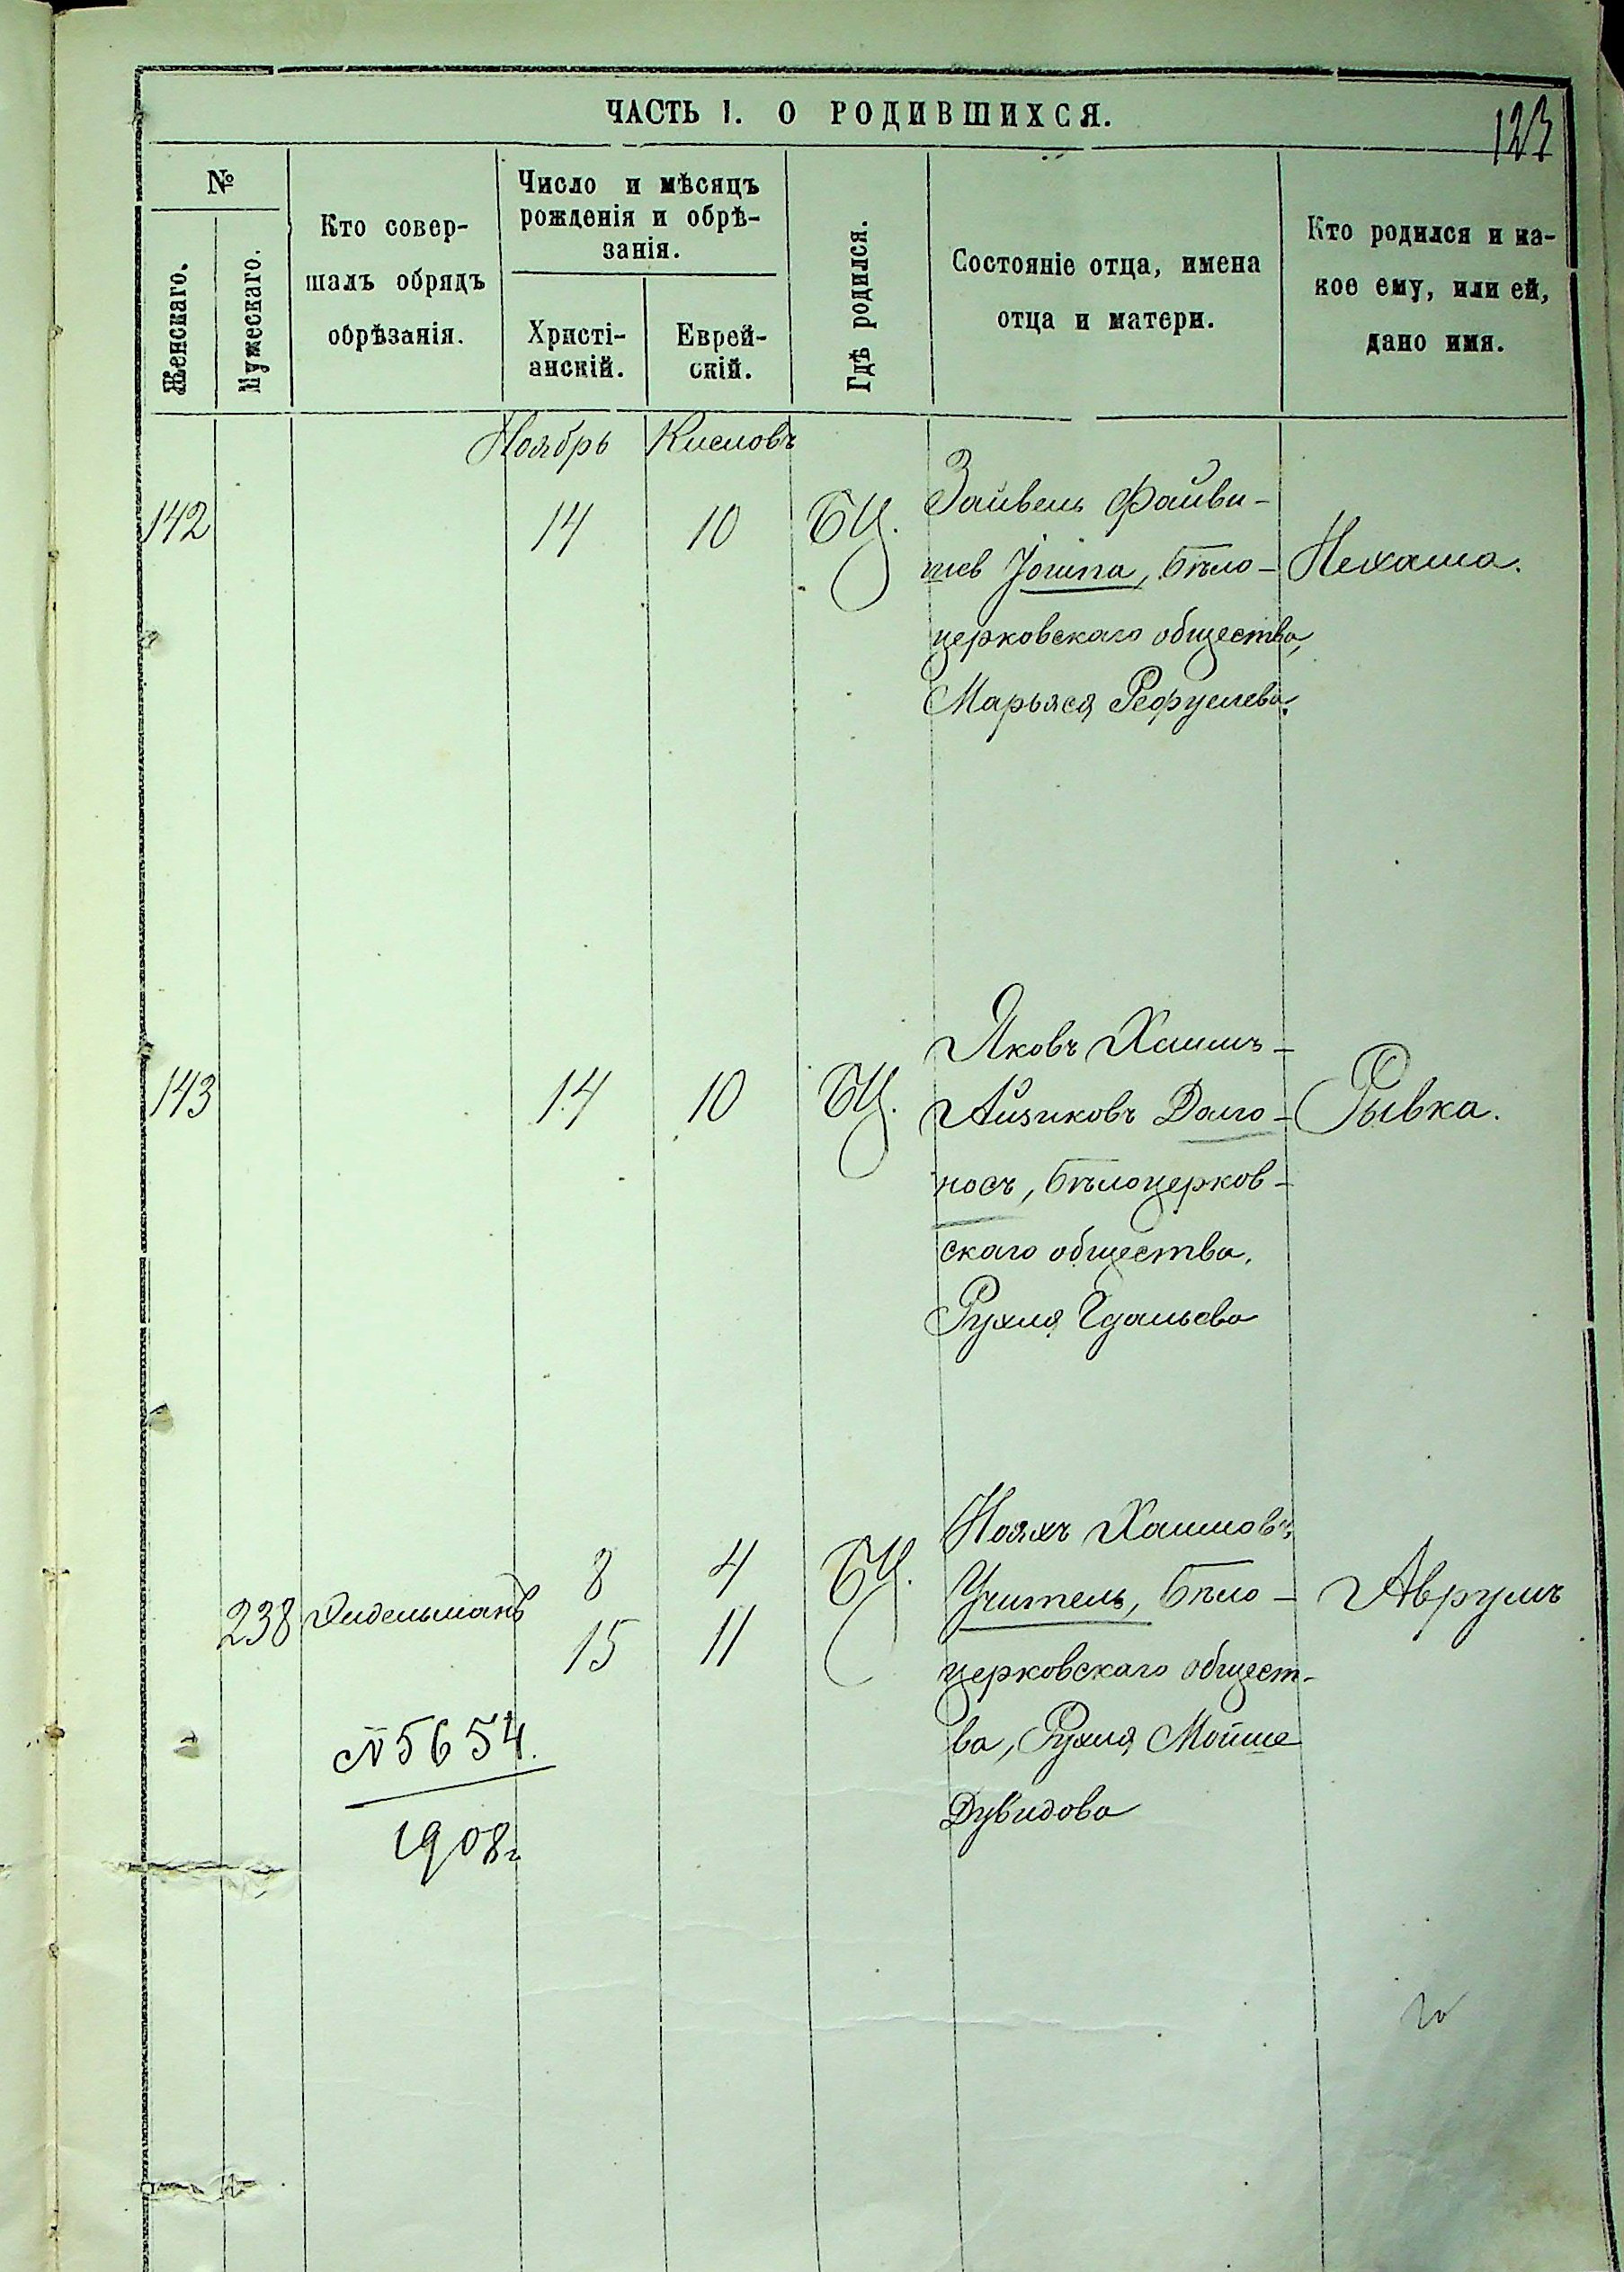 ЧАСТЬ I. О РОДИВШИХСЯ.
123
№
Женскаго.
Мужескаго.
Кто совер-
шалъ обрядъ
обрѣзанія.
Число и мѣсяцъ
рожденія и обрѣ-
занія.
Христі-
анскій.
Еврей-
скій.
Гдѣ родился.
Состояніе отца, имена
отца и матери.
Кто родился и ка-
кое ему, или ей,
дано имя.
Ноябрь Кисловъ
142 14 10 БЦ.
Зайвель Файви-
шев Бѣло-
церковскаго общества,
Марьяся Рефулева.
Нехама.
143 14 10 БЦ.
Яковъ Хаимъ-
Айзиковъ Долго-
носъ, Бѣлоцерков-
скаго общества,
Рухля Гдальева
Рывка.
238 Эйдельманъ
8 4
15 11
БЦ.
Нояхъ Хаимовъ
Учитель, Бѣло-
церковскаго общест-
ва, Рухля Мойше
Дувидова
Аврумъ
№5654.
1908г